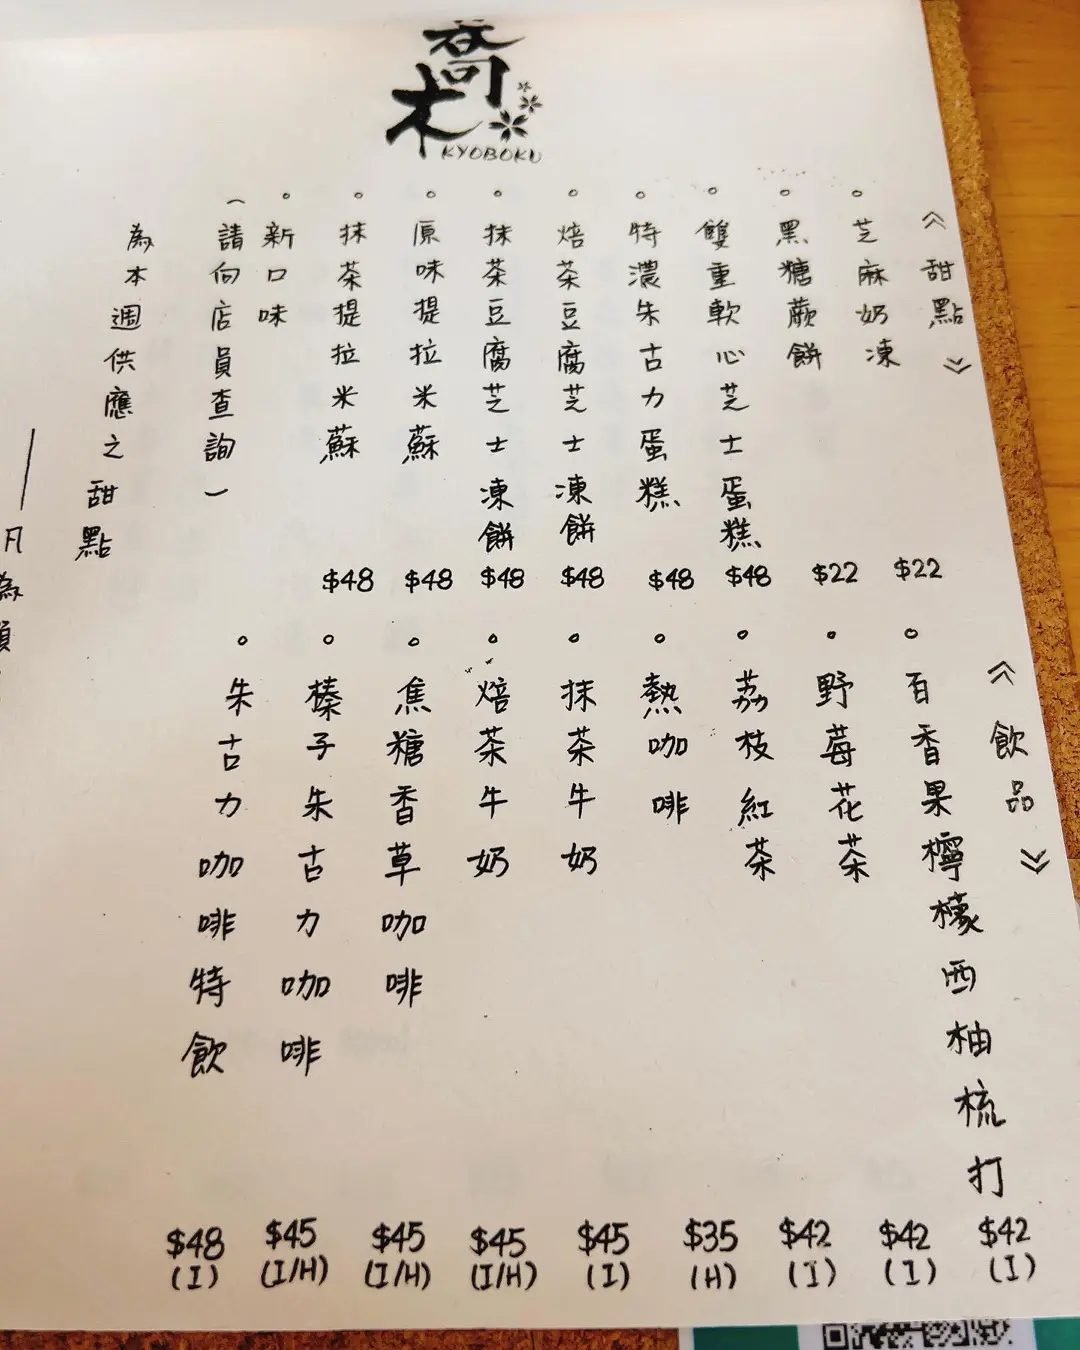 喬木
KYOBOKU
《甜點》
。芝麻奶凍 $22
。黑糖蕨餅 $22
。雙重軟心芝士蛋糕 $48
。特濃朱古力蛋糕 $48
。焙茶豆腐芝士凍餅 $48
。抹茶豆腐芝士凍餅 $48
。原味提拉米蘇 $48
。抹茶提拉米蘇 $48
。新口味
(請向店員查詢)
為本週供應之甜點
《飲品》
。百香果檸檬西柚梳打 $42 (I)
。野莓花茶 $42 (I)
。荔枝紅茶 $42 (I)
。熱咖啡 $35 (H)
。抹茶牛奶 $45 (I)
。焙茶牛奶 $45 (I/H)
。焦糖香草咖啡 $45 (I/H)
。榛子朱古力咖啡 $45 (I/H)
。朱古力咖啡特飲 $48 (I)
凡為